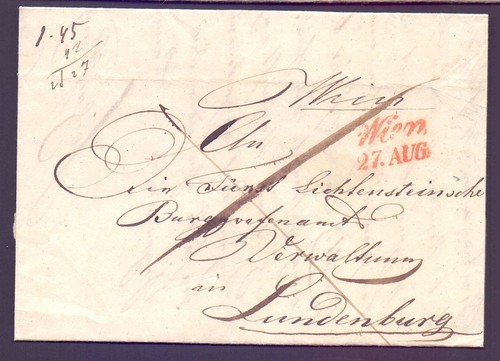 1.45
42
2 27
Wien
Wien
27. AUG.
An
Die Fürst Lichtensteinsche
Burggrafenamts
Verwaltung
in
Lundenburg